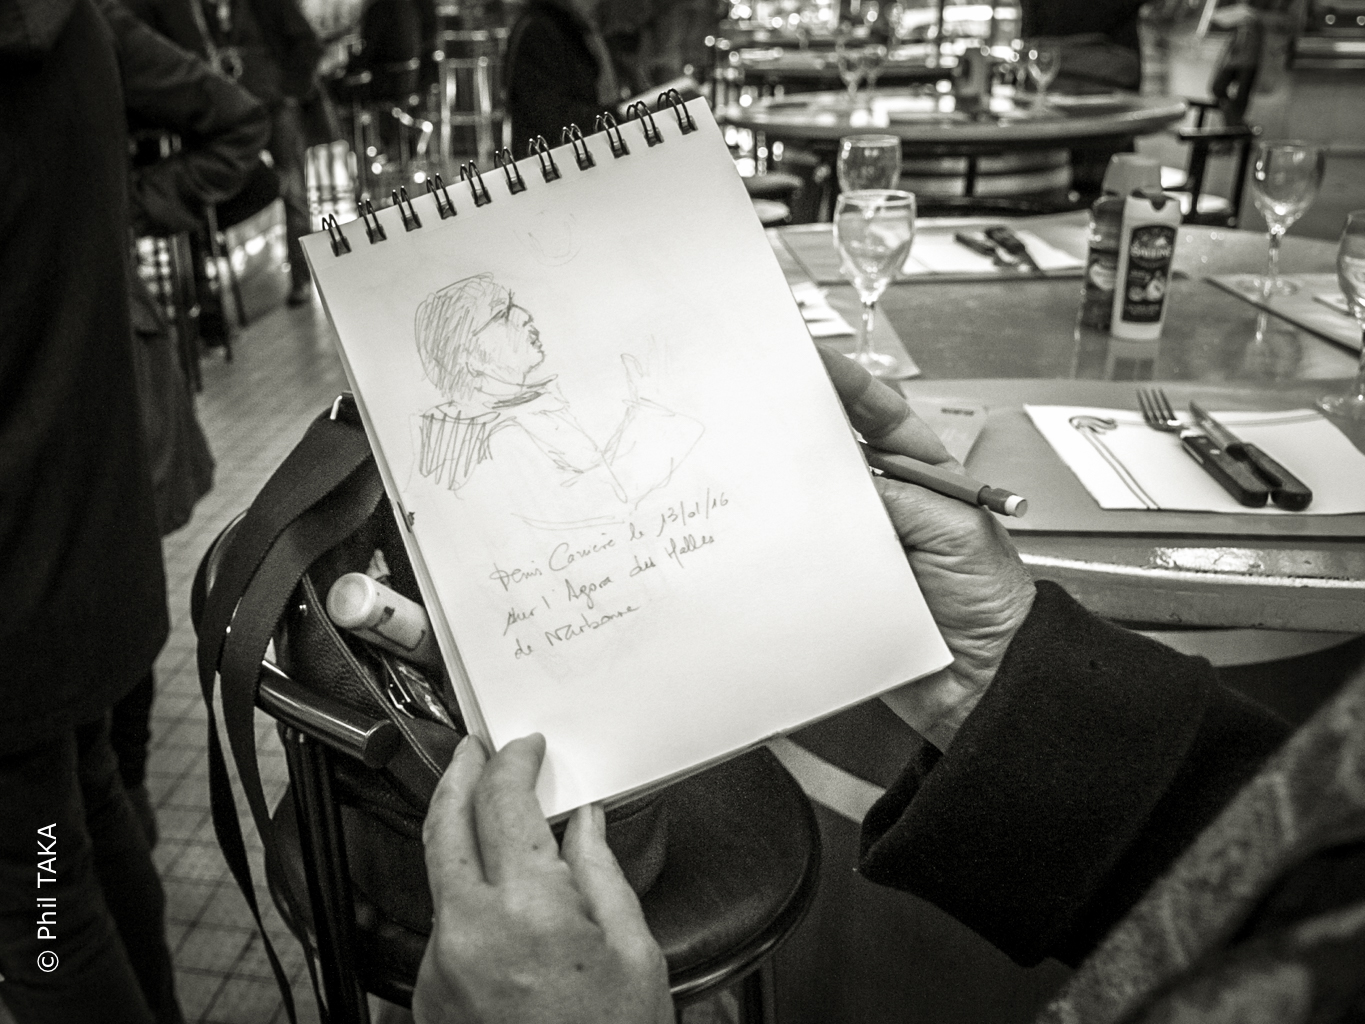 Denis Carrière le 13/01/16
sur l'Agora des Halles
de Narbonne
© Phil TAKA